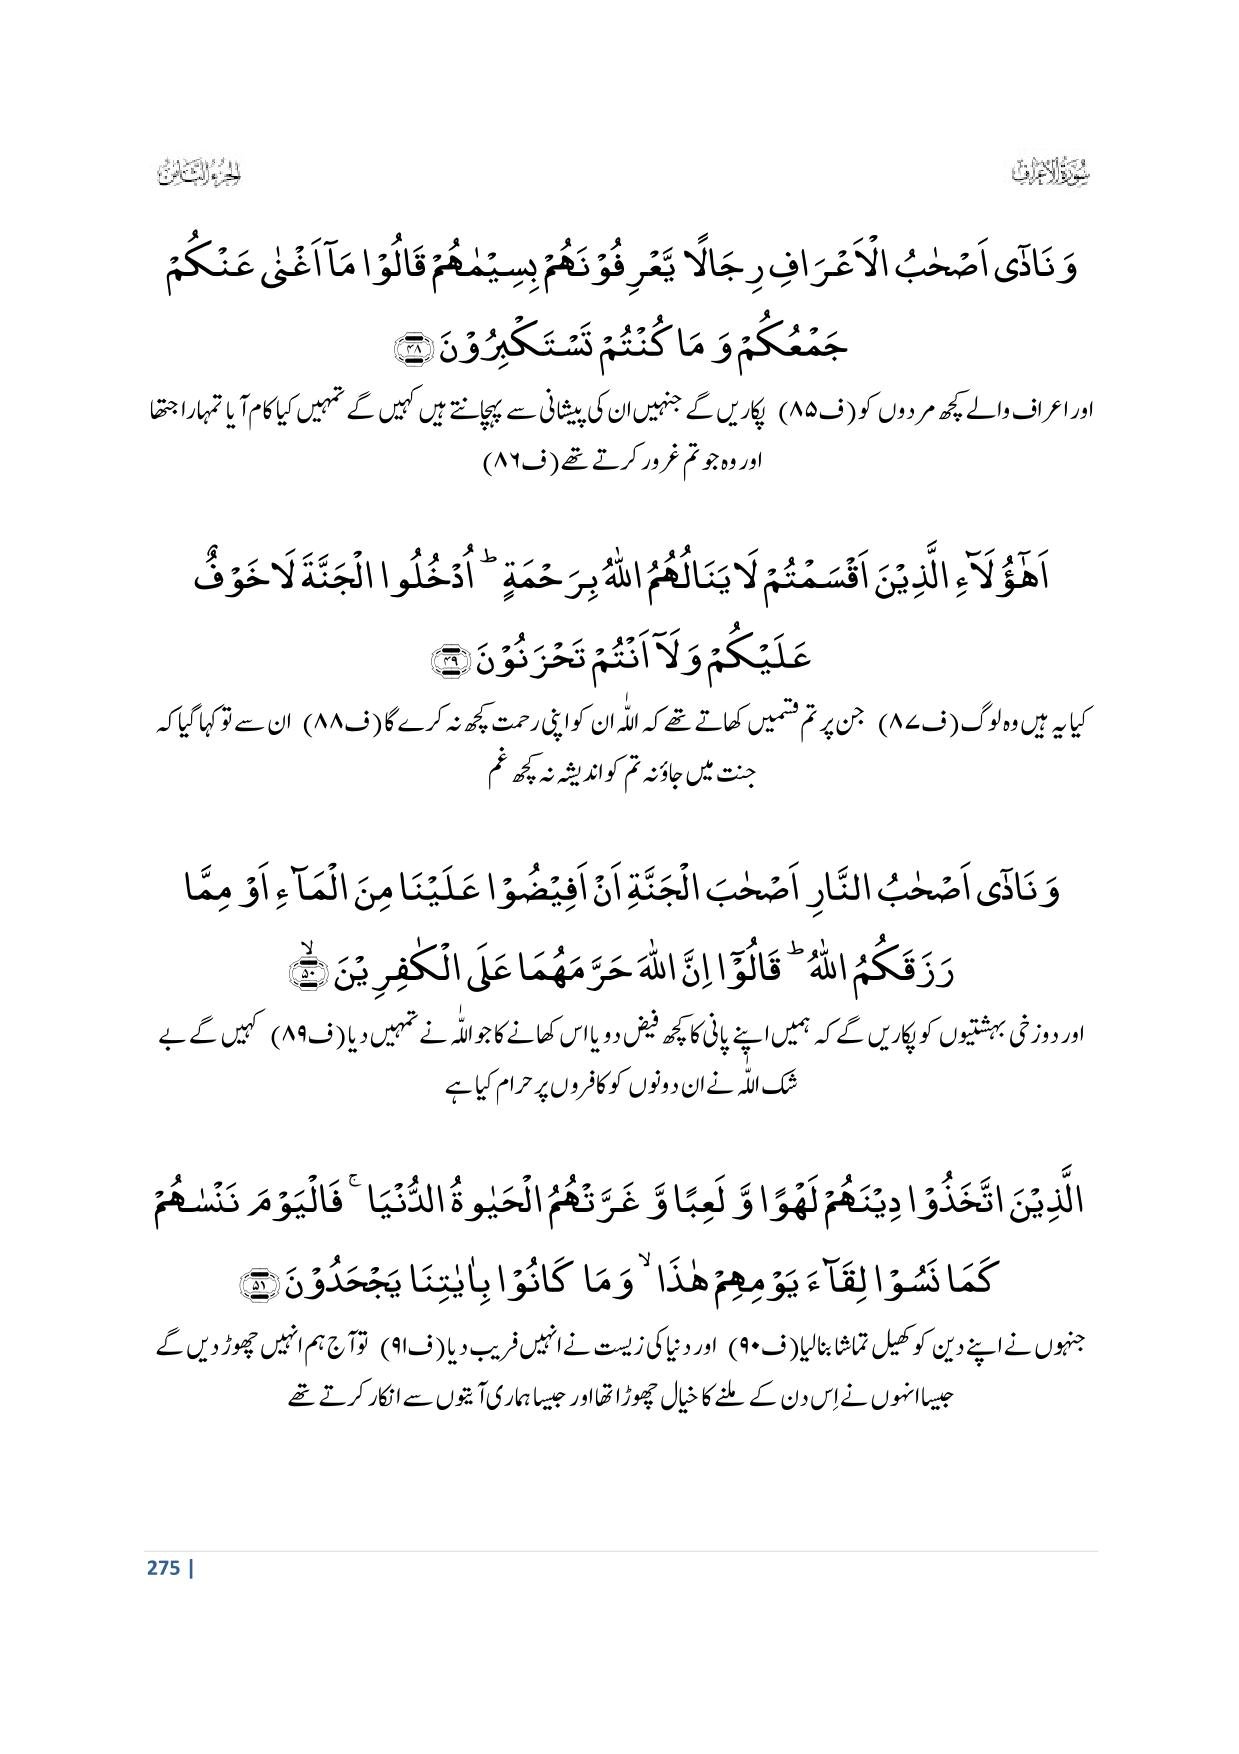 سُوْرَةُ الْاَعْرَافِ
الجزء الثامن
وَ نَادٰۤى اَصْحٰبُ الْاَعْرَافِ رِجَالًا یَّعْرِفُوْنَهُمْ بِسِیْمٰىهُمْ قَالُوْا مَاۤ اَغْنٰى عَنْكُمْ
جَمْعُكُمْ وَ مَا كُنْتُمْ تَسْتَكْبِرُوْنَ ﴿۴۸﴾
اور اعراف والے کچھ مردوں کو (ف۸۵) پکاریں گے جنہیں ان کی پیشانی سے پہچانتے ہیں کہیں گے تمہیں کیا کام آیا تمہارا جتھا
اور وہ جو تم غرور کرتے تھے (ف۸۶)
اَهٰۤؤُلَآءِ الَّذِیْنَ اَقْسَمْتُمْ لَا یَنَالُهُمُ اللّٰهُ بِرَحْمَةٍ ؕ اُدْخُلُوا الْجَنَّةَ لَا خَوْفٌ
عَلَیْكُمْ وَ لَاۤ اَنْتُمْ تَحْزَنُوْنَ ﴿۴۹﴾
کیا یہ ہیں وہ لوگ (ف۸۷) جن پر تم قسمیں کھاتے تھے کہ اللّٰہ ان کو اپنی رحمت کچھ نہ کرے گا (ف۸۸) ان سے تو کہا گیا کہ
جنت میں جاؤ نہ تم کو اندیشہ نہ کچھ غم
وَ نَادٰۤى اَصْحٰبُ النَّارِ اَصْحٰبَ الْجَنَّةِ اَنْ اَفِیْضُوْا عَلَیْنَا مِنَ الْمَآءِ اَوْ مِمَّا
رَزَقَكُمُ اللّٰهُ ؕ قَالُوْۤا اِنَّ اللّٰهَ حَرَّمَهُمَا عَلَى الْكٰفِرِیْنَ ﴿ۙ۵۰﴾
اور دوزخی بہشتیوں کو پکاریں گے کہ ہمیں اپنے پانی کا کچھ فیض دو یا اس کھانے کا جو اللّٰہ نے تمہیں دیا (ف۸۹) کہیں گے بے
شک اللّٰہ نے ان دونوں کو کافروں پر حرام کیا ہے
الَّذِیْنَ اتَّخَذُوْا دِیْنَهُمْ لَهْوًا وَّ لَعِبًا وَّ غَرَّتْهُمُ الْحَیٰوةُ الدُّنْیَا ۚ فَالْیَوْمَ نَنْسٰىهُمْ
كَمَا نَسُوْا لِقَآءَ یَوْمِهِمْ هٰذَا ۙ وَ مَا كَانُوْا بِاٰیٰتِنَا یَجْحَدُوْنَ ﴿۵۱﴾
جنہوں نے اپنے دین کو کھیل تماشا بنالیا (ف۹۰) اور دنیا کی زیست نے انہیں فریب دیا (ف۹۱) تو آج ہم انہیں چھوڑ دیں گے
جیسا انہوں نے اِس دن کے ملنے کا خیال چھوڑا تھا اور جیسا ہماری آیتوں سے انکار کرتے تھے
275 |